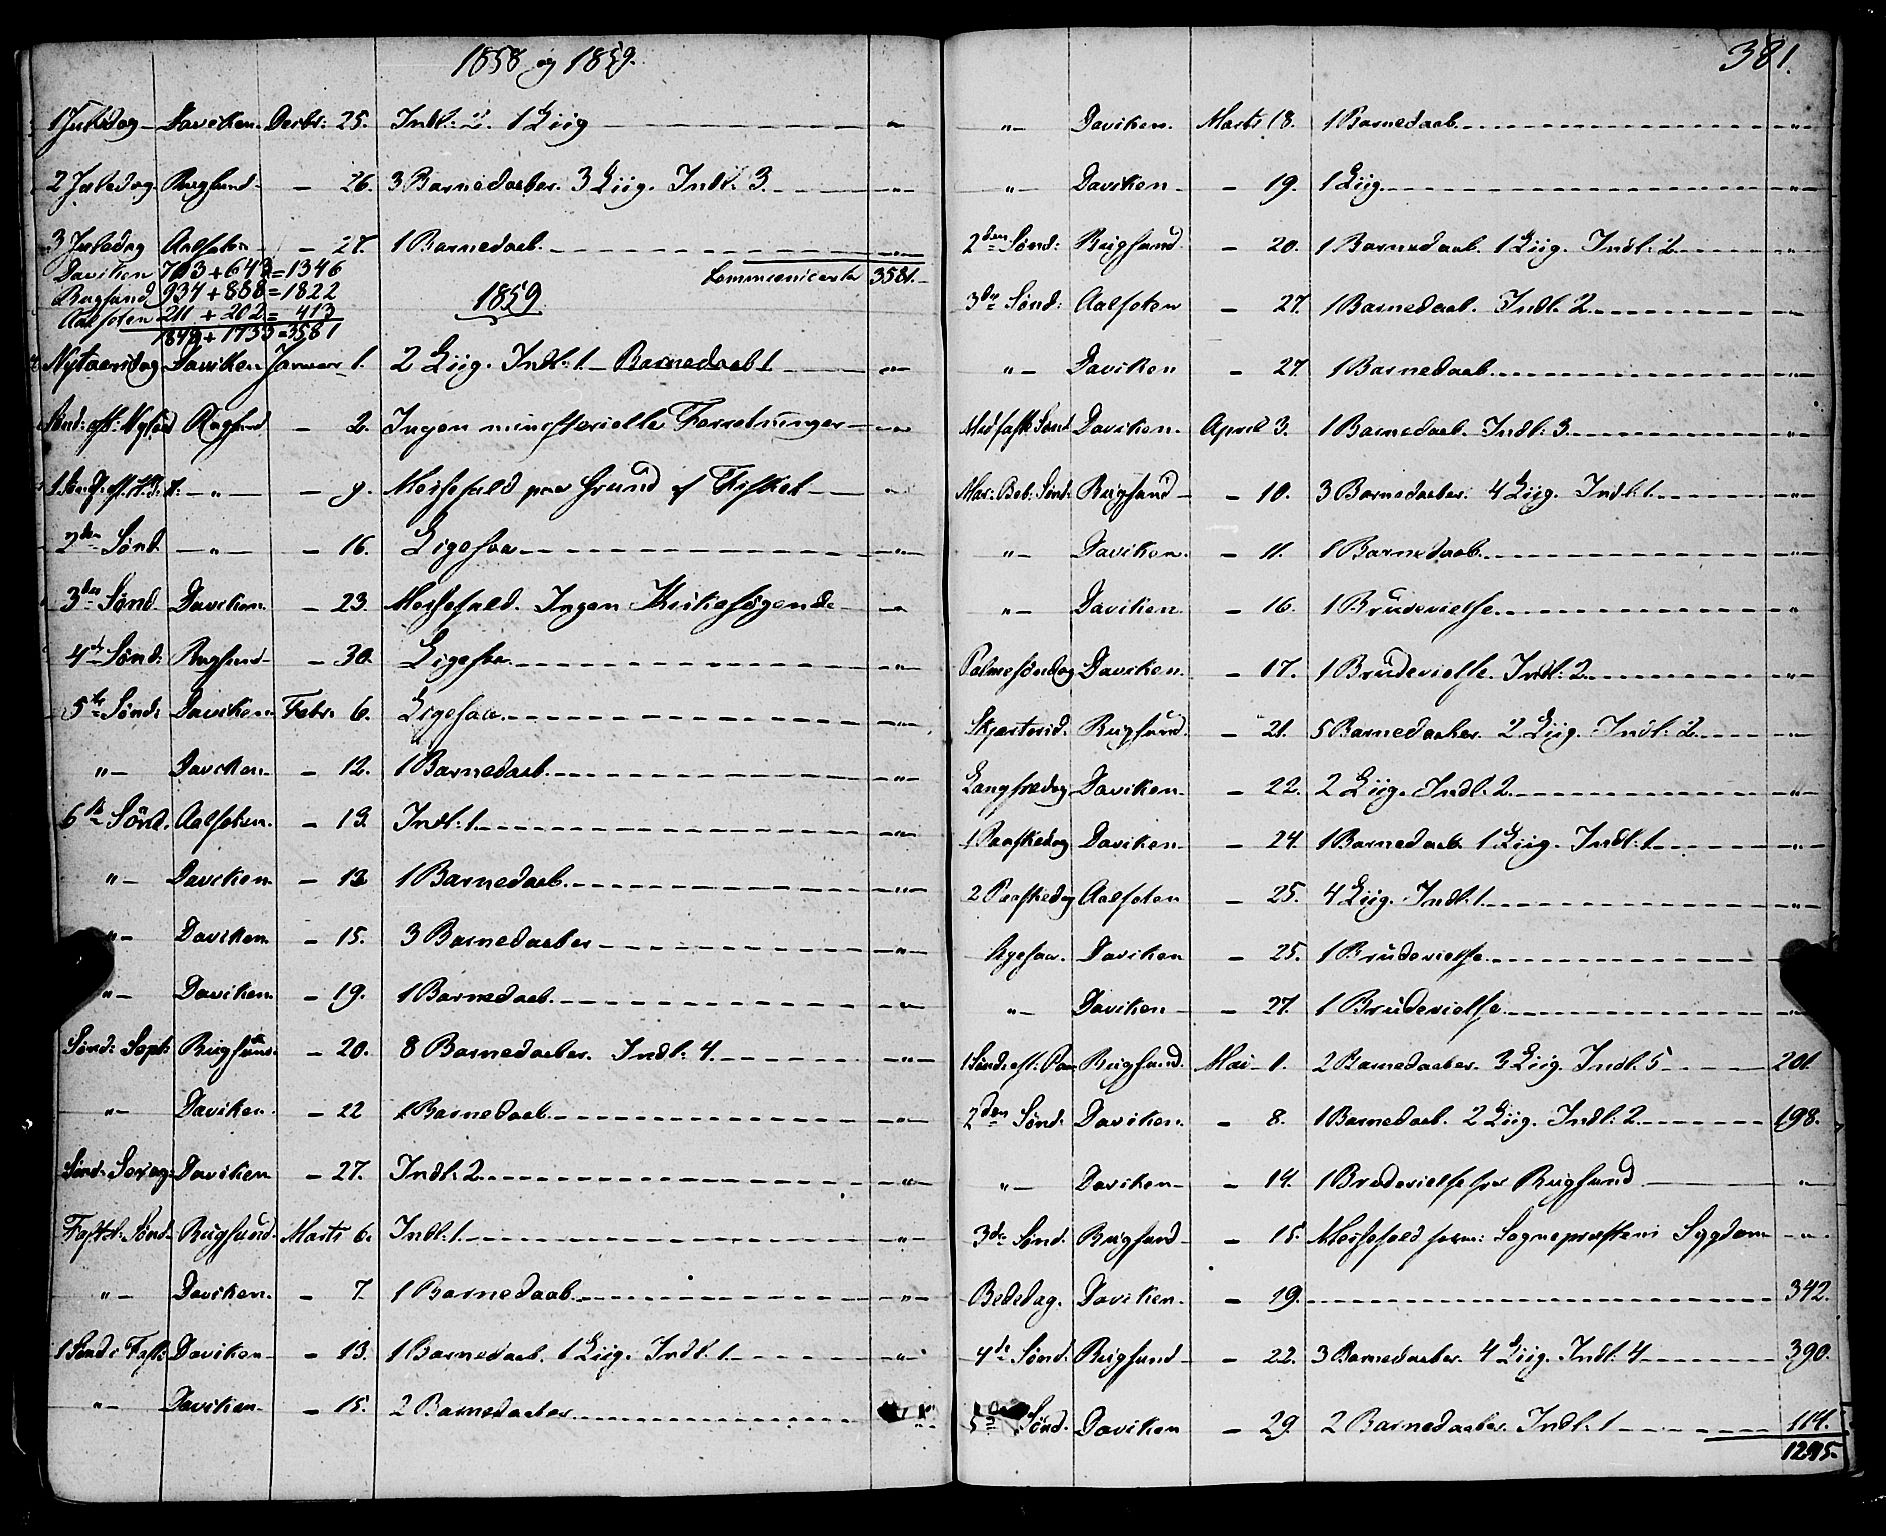 1858 og 1859.
1 Juledag Daviken. Decbr: 25. Indl: 2. 1 Liig „
2 Juledag Rugsund - 26. 3 Barnedaaber. 3 Liig. Indl: 3. „
3 Juledag Aalfoten - 27. 1 Barnedaab. „
Daviken 703+643=1346 Communicanter 3581.
Rugsund 934+888=1822 1859.
Aalfoten 211+202=413
1848+1733=3581
Nytaarsdag Daviken Januar 1. 2 Liig. Indl: 1. Barnedaab 1 „
Sønd: eft: Nytaar Rugsund - 2. Ingen ministerielle Forretninger „
„ - 9. Messefald paa Grund af Fisket „
2den Sønd. „ - 16. Ligesaa „
3die Sønd. Daviken. - 23. Messefald. Ingen Kirkesøgende „
4de Sønd: Rugsund - 30. Ligesaa. „
5te Sønd: Daviken. Febr: 6. Ligesaa. „
„ Daviken. - 12. 1 Barnedaab. „
6te Sønd. Aalfoten. - 13. Indl: 1. „
„ Daviken - 13 1 Barnedaab. „
„ Daviken. - 15. 3 Barnedaaber „
„ Daviken. - 19. 1 Barnedaab. „
Sønd: Sept: Rugsund. - 20. 8 Barnedaaber. Indl: 4. „
„ Daviken. - 22 1 Barnedaab. „
Sønd: Sexag: Daviken - 27. Indl: 2. „
Fastel: Sønd. Rugsund. Marts 6. Indl: 1. „
„ Daviken. - 7. 1 Barnedaab. „
1 Sønd: i Faste Daviken - 13. 1 Barnedaab. 1 Liig. Indl: 1. „
„ Daviken. - 15. 2 Barnedaaber. „
381.
„ Daviken. Marts 18. 1 Barnedaab. „
„ Daviken - 19. 1 Liig. „
2den Sønd: Rugsund - 20. 1 Barnedaab. 1 Liig. Indl: 2. „
3die Sønd: Aalfoten - 27. 1 Barnedaab. Indl: 2. „
„ Daviken - 27. 1 Barnedaab. „
Midfaste Sønd Daviken. April 3. 1 Barnedaab. Indl: 3. „
Mar: Beb: Sønd: Rugsund - 10. 3 Barnedaaber. 4 Liig. Indl: 1. „
„ Daviken. - 11. 1 Barnedaab. „
„ Daviken - 16. 1 Brudevielse. „
Palmesøndag Daviken. - 17. 1 Brudevielse. Indl: 2. „
Skjærtorsd: Rugsund. - 21. 5 Barnedaaber. 2 Liig. Indl: 2. „
Langfredag Daviken. - 22. 2 Liig. Indl: 2. „
1 Paaskedag Daviken. - 24. 1 Barnedaab. 1 Liig. Indl: 1. „
2 Paaskedag Aalfoten - 25. 4 Liig. Indl: 1. „
Ligesaa. Daviken - 25. 1 Brudevielse. „
„ Daviken - 27. 1 Brudevielse „
1 Sønd: eft: Paa Rugsund. Mai 1. 2 Barnedaaber. 3 Liig. Indl: 5 201.
2den Sønd. Daviken. - 8. 1 Barnedaab. 2 Liig. Indl: 2. 198.
„ Daviken. - 14. 1 Brudevielse for Rugsund „
3die Sønd. Rugsund - 15. Messefald form: Sognepræstens Sygdom „
Bededag. Daviken. - 19. 342.
4de Sønd. Rugsund - 22. 3 Barnedaaber. 4 Liig. Indl: 4 390.
5te Sønd. Daviken - 29. 2 Barnedaaber. Indl: 1 114.
1245.